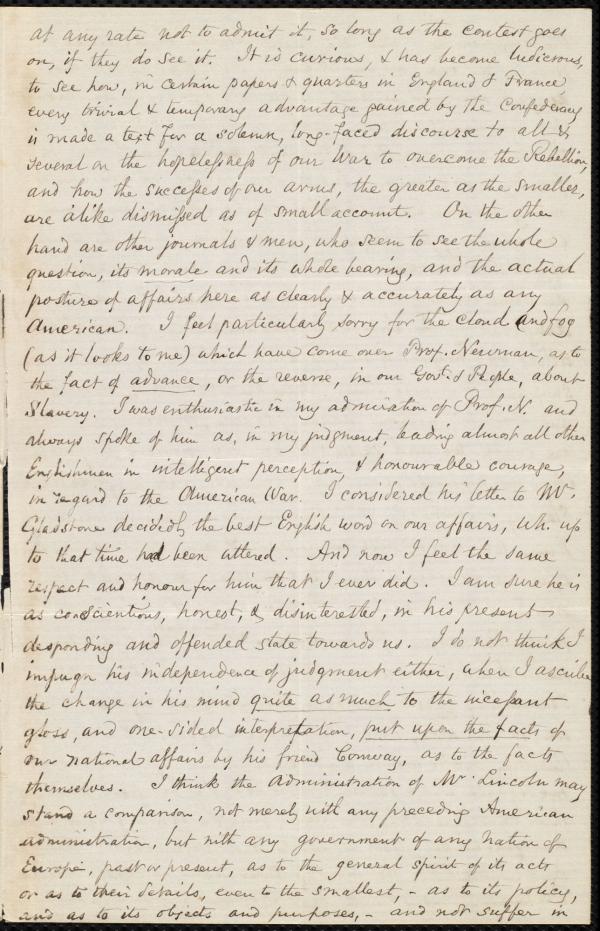 at any rate not to admit it, so long as the contest goes
on, if they do see it. It is curious, & has become ludicrous,
to see how, in certain papers & quarters in England & France,
every trivial & temporary advantage gained by the Confederacy
is made a text for a solemn, long-faced discourse to all &
several on the hopelessness of our War to overcome the Rebellion,
and how the successes of our arms, the greater as the smaller,
are alike dismissed as of small account. On the other
hand are other journals & men, who seem to see the whole
question, its morale and its whole bearing, and the actual
posture of affairs here as clearly & accurately as any
American. I feel particularly sorry for the cloud and fog
(as it looks to me) which have come over Prof. Newman, as to
the fact of advance, or the reverse, in our Govt. & People, about
Slavery. I was enthusiastic in my admiration of Prof. N. and
always spoke of him as, in my judgment, leading almost all other
Englishmen in intelligent perception, & honourable courage,
in regard to the American War. I considered his letter to Mr.
Gladstone decidedly the best English word on our affairs, wh. up
to that time had been uttered. And now I feel the same
respect and honour for him that I ever did. I am sure he is
as conscientious, honest, & disinterested, in his present
desponding and offended state towards us. I do not think I
impugn his independence of judgment either, when I ascribe
the change in his mind quite as much to the incessant
gloss, and one-sided interpretation, put upon the facts of
our national affairs by his friend Conway, as to the facts
themselves. I think the administration of Mr. Lincoln may
stand a comparison, not merely with any preceding American
administration, but with any government of any nation of
Europe, past or present, as to the general spirit of its acts
or as to their details, even to the smallest, - as to its policy,
and as to its objects and purposes, - and not suffer in